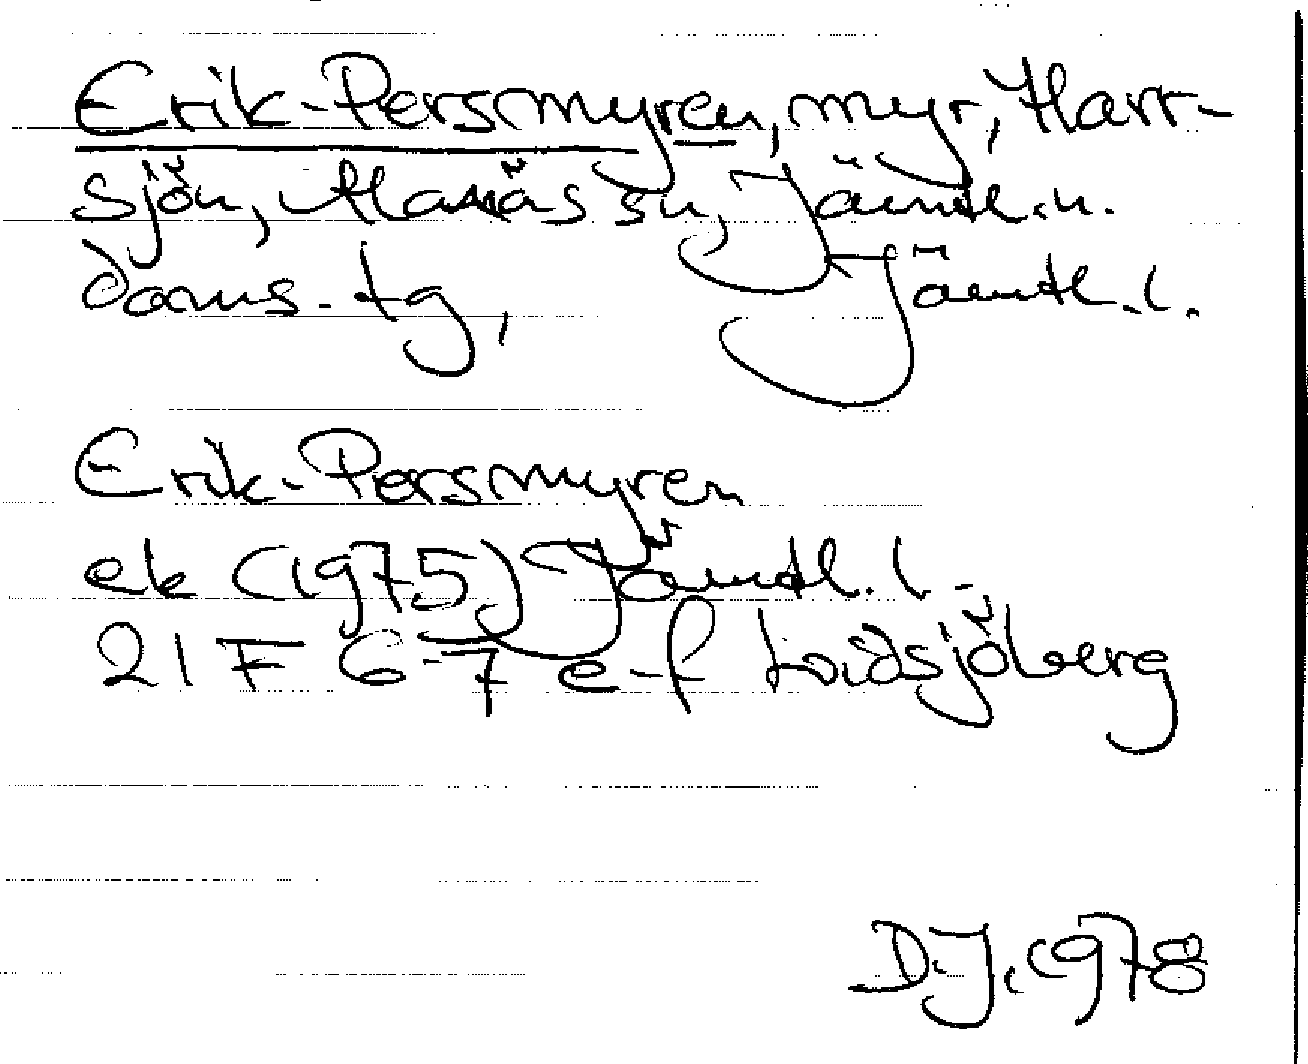 Erik-Persmyren, myr, Harr-
sjön, Alanäs sn, Jämtl. n.
doms. tg, Jämtl. l.
Erik-Persmyren
ek (1975) Jämtl. l.
21 F 6-7 e-f Lidsjöberg
D.J. 1978